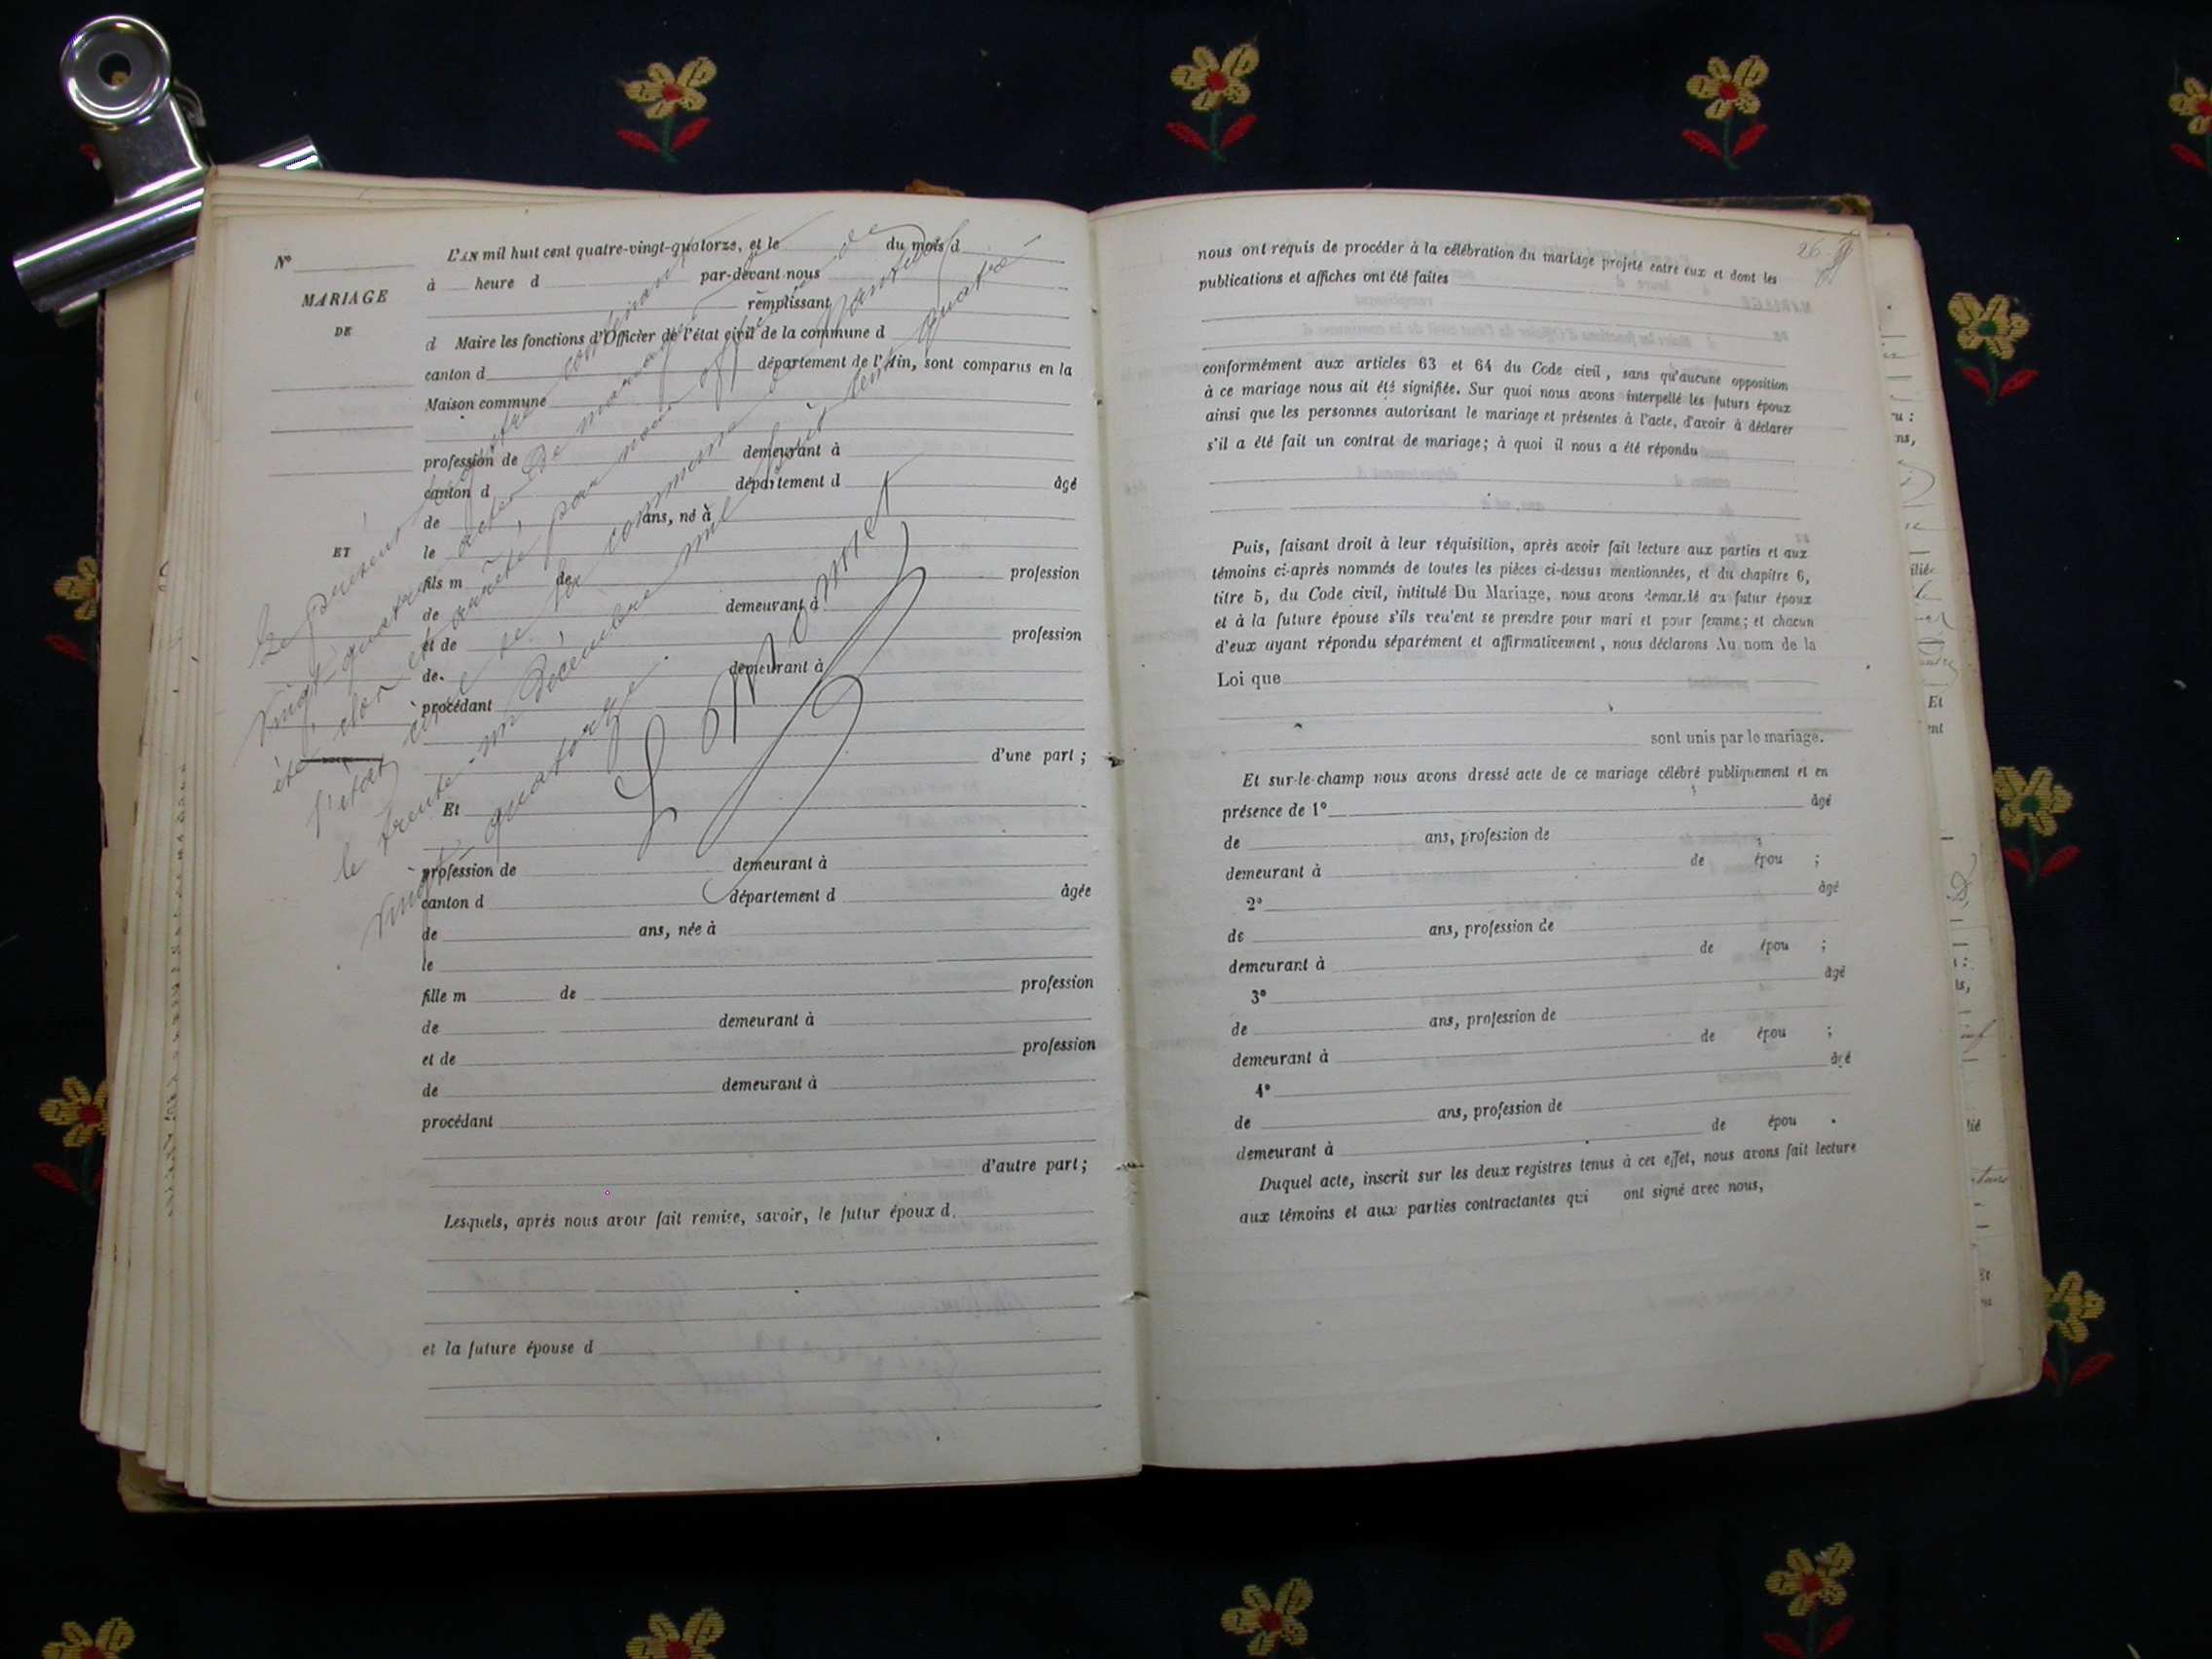 N°
MARIAGE
DE
ET
L'AN mil huit cent quatre-vingt-quatorze, et le du mois d
à heure d par-devant nous
remplissant
d Maire les fonctions d'Officier de l'état civil de la commune d
canton d département de l'Ain, sont comparus en la
Maison commune
profession de demeurant à
canton d département d âgé
de ans, né à
le
fils m de profession
de demeurant à
et de profession
de demeurant à
procédant
d'une part ;
Et
profession de demeurant à
canton d département d âgée
de ans, née à
le
fille m de profession
de demeurant à
et de profession
de demeurant à
procédant
d'autre part ;
Lesquels, après nous avoir fait remise, savoir, le futur époux d
et la future épouse d
Le présent registre contenant
vingt-quatre actes de mariage a
été clos et arrêté par nous officier de
l'état civil de la commune de
le trente-un Décembre mil huit cent quatre
vingt-quatorze.
26
nous ont requis de procéder à la célébration du mariage projeté entre eux et dont les
publications et affiches ont été faites
conformément aux articles 63 et 64 du Code civil, sans qu'aucune opposition
à ce mariage nous ait été signifiée. Sur quoi nous avons interpellé les futurs époux
ainsi que les personnes autorisant le mariage et présentes à l'acte, d'avoir à déclarer
s'il a été fait un contrat de mariage; à quoi il nous a été répondu
Puis, faisant droit à leur réquisition, après avoir fait lecture aux parties et aux
témoins ci-après nommés de toutes les pièces ci-dessus mentionnées, et du chapitre 6,
titre 5, du Code civil, intitulé Du Mariage, nous avons demandé au futur époux
et à la future épouse s'ils veulent se prendre pour mari et pour femme; et chacun
d'eux ayant répondu séparément et affirmativement, nous déclarons Au nom de la
Loi que
sont unis par le mariage.
Et sur-le-champ nous avons dressé acte de ce mariage célébré publiquement et en
présence de 1° âgé
de ans, profession de
demeurant à de épou ;
2° âgé
de ans, profession de
demeurant à de épou ;
3° âgé
de ans, profession de
demeurant à de épou ;
4° âgé
de ans, profession de
demeurant à de épou .
Duquel acte, inscrit sur les deux registres tenus à cet effet, nous avons fait lecture
aux témoins et aux parties contractantes qui ont signé avec nous,